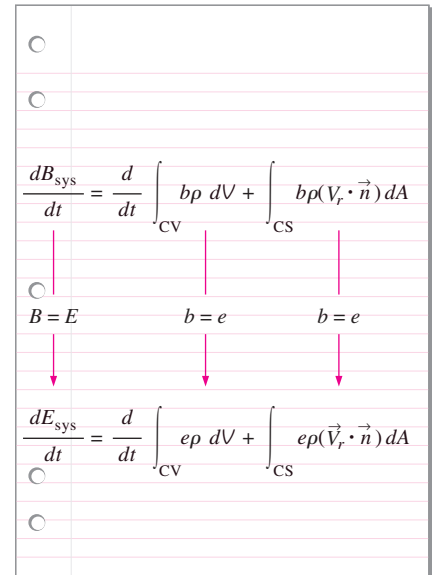 dB_sys/dt = d/dt ∫_CV bρ dV + ∫_CS bρ(V_r · n⃗) dA
B = E b = e b = e
dE_sys/dt = d/dt ∫_CV eρ dV + ∫_CS eρ(V⃗_r · n⃗) dA